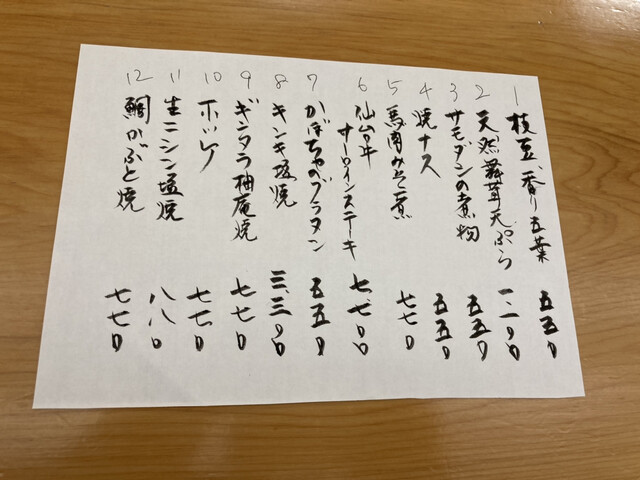 1 枝豆、香り五葉 五五〇
2 天然舞茸天ぷら 一、一〇〇
3 サモダシの煮物 五五〇
4 焼ナス 五五〇
5 馬肉みそ煮 七七〇
6 仙台牛サーロインステーキ 七、七〇〇
7 かぼちゃのグラタン 五五〇
8 キンキ塩焼 三、三〇〇
9 ギンダラ柚庵焼 七七〇
10 ホッケ 七七〇
11 生ニシン塩焼 八八〇
12 鯛かぶと焼 七七〇